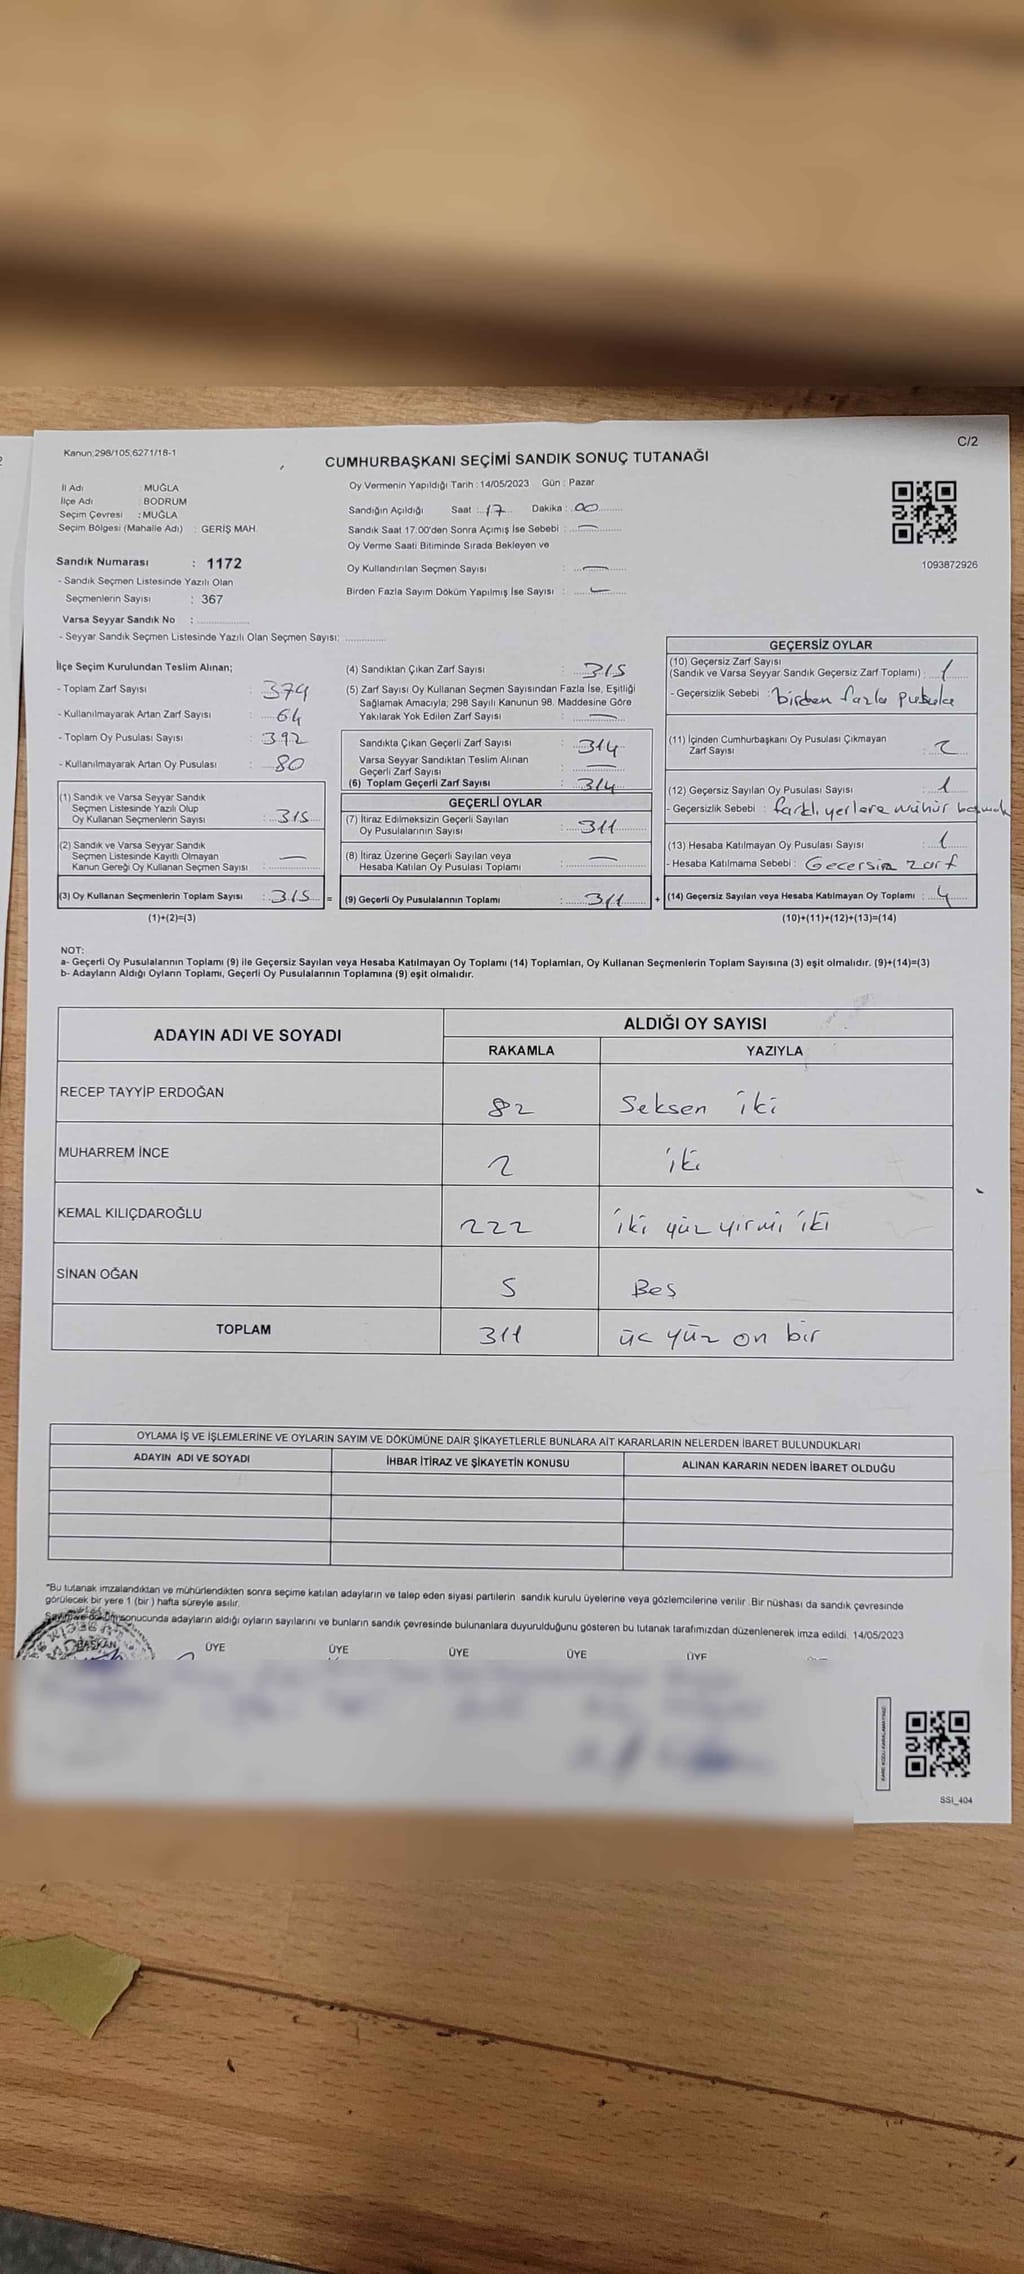 C/2
Kanun,298/105,6271/18-1
CUMHURBAŞKANI SEÇİMİ SANDIK SONUÇ TUTANAĞI
İl Adı : MUĞLA
İlçe Adı : BODRUM
Seçim Çevresi : MUĞLA
Seçim Bölgesi (Mahalle Adı) : GERİŞ MAH.
Sandık Numarası : 1172
- Sandık Seçmen Listesinde Yazılı Olan
Seçmenlerin Sayısı : 367
Varsa Seyyar Sandık No :
- Seyyar Sandık Seçmen Listesinde Yazılı Olan Seçmen Sayısı:
Oy Vermenin Yapıldığı Tarih : 14/05/2023 Gün : Pazar
Sandığın Açıldığı Saat : 17 Dakika : 00
Sandık Saat 17.00'den Sonra Açımış İse Sebebi : —
Oy Verme Saati Bitiminde Sırada Bekleyen ve
Oy Kullandırılan Seçmen Sayısı : —
Birden Fazla Sayım Döküm Yapılmış İse Sayısı : —
1093872926
İlçe Seçim Kurulundan Teslim Alınan;
- Toplam Zarf Sayısı : 379
- Kullanılmayarak Artan Zarf Sayısı : 64
- Toplam Oy Pusulası Sayısı : 392
- Kullanılmayarak Artan Oy Pusulası : 80
(1) Sandık ve Varsa Seyyar Sandık
Seçmen Listesinde Yazılı Olup
Oy Kullanan Seçmenlerin Sayısı : 315
(2) Sandık ve Varsa Seyyar Sandık
Seçmen Listesinde Kayıtlı Olmayan
Kanun Gereği Oy Kullanan Seçmen Sayısı : —
(3) Oy Kullanan Seçmenlerin Toplam Sayısı : 315 =
(1)+(2)=(3)
(4) Sandıktan Çıkan Zarf Sayısı : 315
(5) Zarf Sayısı Oy Kullanan Seçmen Sayısından Fazla İse, Eşitliği
Sağlamak Amacıyla; 298 Sayılı Kanunun 98. Maddesine Göre
Yakılarak Yok Edilen Zarf Sayısı : —
Sandıkta Çıkan Geçerli Zarf Sayısı : 314
Varsa Seyyar Sandıktan Teslim Alınan
Geçerli Zarf Sayısı : —
(6) Toplam Geçerli Zarf Sayısı : 314
GEÇERLİ OYLAR
(7) İtiraz Edilmeksizin Geçerli Sayılan
Oy Pusulalarının Sayısı : 311
(8) İtiraz Üzerine Geçerli Sayılan veya
Hesaba Katılan Oy Pusulası Toplamı : —
(9) Geçerli Oy Pusulalarının Toplamı : 311 +
GEÇERSİZ OYLAR
(10) Geçersiz Zarf Sayısı
(Sandık ve Varsa Seyyar Sandık Geçersiz Zarf Toplamı) : 1
- Geçersizlik Sebebi : birden fazla pusula
(11) İçinden Cumhurbaşkanı Oy Pusulası Çıkmayan
Zarf Sayısı : 2
(12) Geçersiz Sayılan Oy Pusulası Sayısı : 1
- Geçersizlik Sebebi : farklı yerlere mühür basmak
(13) Hesaba Katılmayan Oy Pusulası Sayısı : 1
- Hesaba Katılmama Sebebi : Gecersiz zarf
(14) Geçersiz Sayılan veya Hesaba Katılmayan Oy Toplamı : 4
(10)+(11)+(12)+(13)=(14)
NOT:
a- Geçerli Oy Pusulalarının Toplamı (9) ile Geçersiz Sayılan veya Hesaba Katılmayan Oy Toplamı (14) Toplamları, Oy Kullanan Seçmenlerin Toplam Sayısına (3) eşit olmalıdır. (9)+(14)=(3)
b- Adayların Aldığı Oyların Toplamı, Geçerli Oy Pusulalarının Toplamına (9) eşit olmalıdır.
ADAYIN ADI VE SOYADI ALDIĞI OY SAYISI
RAKAMLA YAZIYLA
RECEP TAYYİP ERDOĞAN 82 Seksen iki
MUHARREM İNCE 2 iki
KEMAL KILIÇDAROĞLU 222 iki yüz yirmi iki
SİNAN OĞAN 5 Beş
TOPLAM 311 üc yüz on bir
OYLAMA İŞ VE İŞLEMLERİNE VE OYLARIN SAYIM VE DÖKÜMÜNE DAİR ŞİKAYETLERLE BUNLARA AİT KARARLARIN NELERDEN İBARET BULUNDUKLARI
ADAYIN ADI VE SOYADI İHBAR İTİRAZ VE ŞİKAYETİN KONUSU ALINAN KARARIN NEDEN İBARET OLDUĞU
"Bu tutanak imzalandıktan ve mühürlendikten sonra seçime katılan adayların ve talep eden siyasi partilerin sandık kurulu üyelerine veya gözlemcilerine verilir .Bir nüshası da sandık çevresinde
görülecek bir yere 1 (bir ) hafta süreyle asılır.
Sayım ve döküm sonucunda adayların aldığı oyların sayılarını ve bunların sandık çevresinde bulunanlara duyurulduğunu gösteren bu tutanak tarafımızdan düzenlenerek imza edildi. 14/05/2023
BAŞKAN ÜYE ÜYE ÜYE ÜYE ÜYE
SSI_404